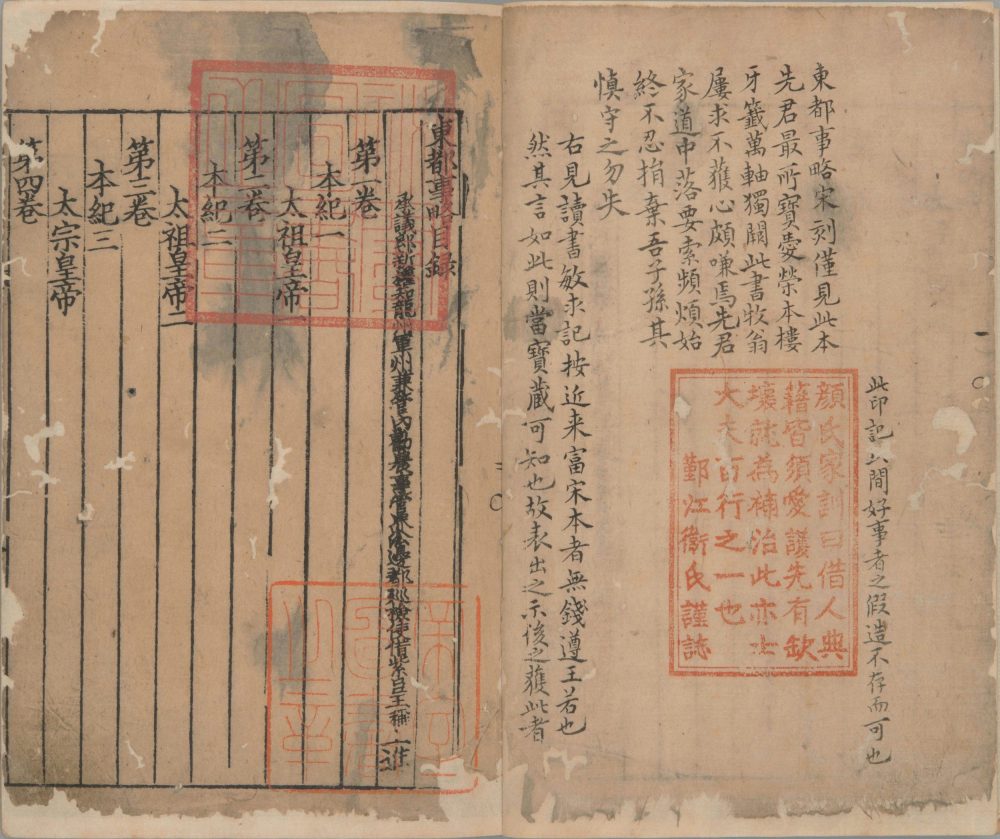 此印記間好事者之假造不存而可也
東都事略宋刻僅見此本
先君最所寶愛榮本樓
牙籤萬軸獨闕此書牧翁
屢求不獲心頗嗛焉先君
家道中落要索頻煩始
終不忍捐棄吾子孫其
慎守之勿失
顔氏家訓曰借人典
籍皆須愛護先有缺
壞就為補治此亦士
大夫百行之一也
鄞江衛氏謹誌
右見讀書敏求記按近来富宋本者無錢遵王若也
然其言如此則當寶藏可知也故表出之示後之獲此者
東都事略目録
承議郎新權知龍州軍州兼管内勸農事管界沿邊都巡檢使借紫臣王稱上進
第一卷
本紀一
太祖皇帝一
第二卷
本紀二
太祖皇帝二
第三卷
本紀三
太宗皇帝
第四卷